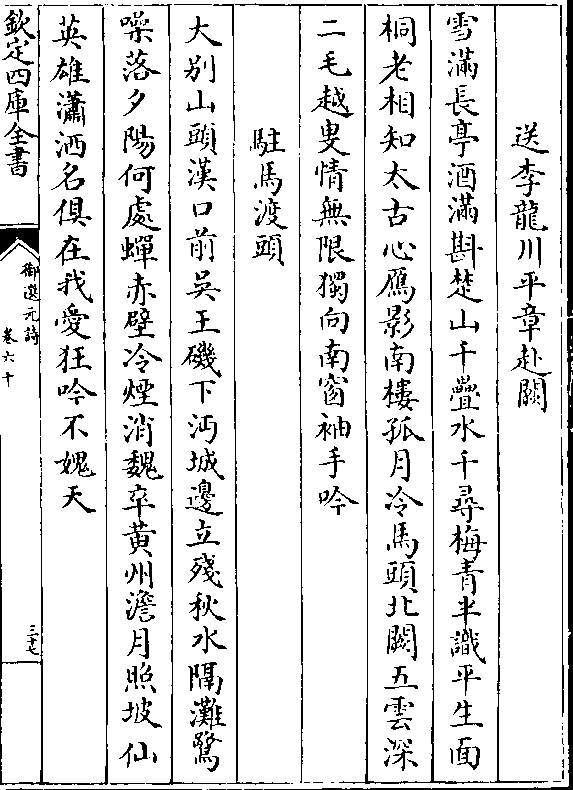 送李龍川平章赴闕
雪滿長亭酒滿斟楚山千疊水千尋梅青半識平生面
桐老相知太古心鴈影南樓孤月冷馬頭北闕五雲深
二毛越叟情無限獨向南窗袖手吟
駐馬渡頭
大别山頭漢口前吳王磯下沔城邊立殘秋水隔灘鷺
噪落夕陽何處蟬赤壁冷煙消魏卒黄州澹月照坡仙
英雄瀟洒名俱在我愛狂吟不媿天
欽定四庫全書
御選元詩
卷六十
三十七